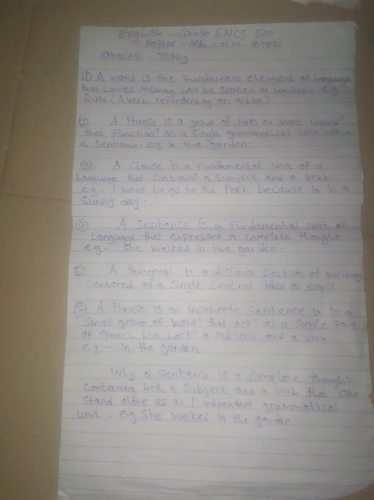 English - Course EMCS 500
- Pastor - MALCOLM
① A word is the Fundament element of Language
that carries meaning can be spoken or written. e.g
RUN (A verb representing an
② A Phrase is a group of two or more word
that Function as a single grammatical unit within
a sentence. eg in the garden.
③ A Clause is a Fundamental unit of a
Language that contain a subject and a verb
e.g - I want to go to the Park because it is a
Sunny day.
④ A Sentence is a Fundamental unit of
Language that expresses a complete thought
e.g - She walked in the garden.
⑤ A Paragraph is a distinct section of writing
centered on a single central idea or topic
A Phrase is an incomplete sentence is is a
small group of word that acts as a single part
of speech but lack a subject and a verb
e.g - In the garden
Why a sentence is a complete thought
containing both a subject and a verb that can
stand alone as an grammatical
unit - e.g She walked in the garden